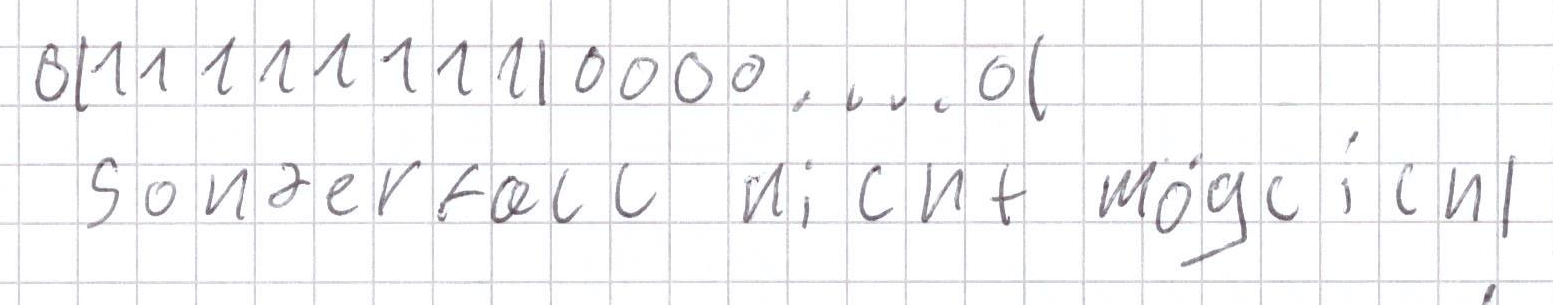 0|11111111|0000....0|
Sonderfall nicht möglich!